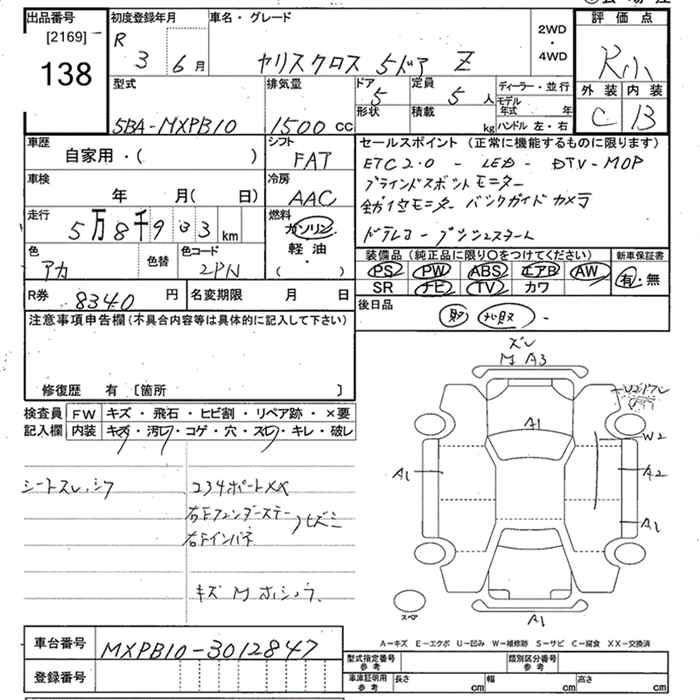 出品番号 初度登録年月 車名・グレード 2WD・4WD 評価点
[2169]
138 R 3 6月 ヤリスクロス 5ドア Z R小
型式 排気量 ドア 5 形状 定員 5人 積載 kg ディーラー・並行 モデル年式 年 ハンドル 左・右 外装 内装
5BA-MXPB10 1500 cc C B
車歴 自家用・( ) シフト FAT
セールスポイント (正常に機能するものに限ります)
ETC2.0 - LED - DTV-MOP
ブラインドスポットモニター
全方位モニター バックガイドカメラ
ドラレコ - プッシュスタート
車検 年 月( 日) 冷房 AAC
走行 5万8千9 33 km 燃料 ガソリン 軽油 ( ・ )
色 アカ 色替 色コード 2PN
装備品 (純正品に限り○をつけてください) 新車保証書
PS PW ABS エアB AW 有・無
SR ナビ TV カワ
R券 8340 円 名変期限 月 日
後日品 取 -
注意事項申告欄 (不具合内容等は具体的に記入して下さい)
修復歴 有 〔箇所 〕
検査員 FW キズ・飛石・ヒビ割・リペア跡・×要
記入欄 内装 キズ・汚レ・コゲ・穴・スレ・キレ・破レ
ズレ
M A3
A1
W2
A1 A2
A1
シートスレ、シワ
234ポートXX
右Fフェンダーステー
右Fインパネ ヒズミ
キズ M ホシュウ
スペア
A1
A-キズ E-エクボ U-凹み W-補修跡 S-サビ C-腐食 XX-交換済
車台番号 MXPB10-3012847
登録番号
型式指定番号 参考 類別区分番号 参考
車庫証明用 参考 長さ cm 幅 cm 高さ cm